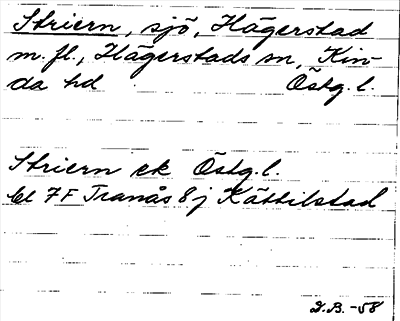 Striern, sjö, Hägerstad
m. fl., Hägerstads sn, Kin-
da hd Östg. l.
Striern ek Östg. l.
bl 7F Tranås 8j Kättilstad
D.B. -58